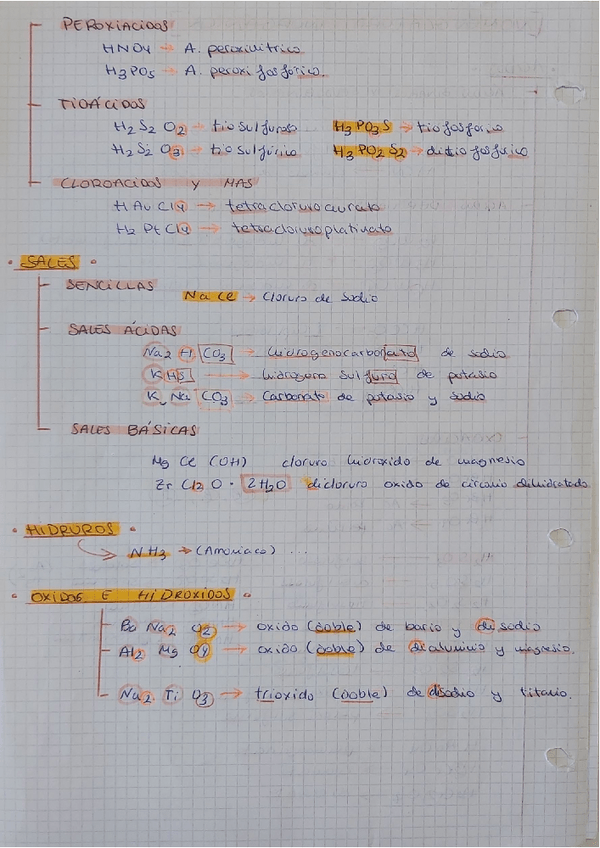 PEROXIACIDOS
HNO4 → A. peroxinitrico
H3PO5 → A. peroxifosforico
TIOÁCIDOS
H2S2O2 → tiosulfuroso H3PO3S → tiofosforico
H2S2O3 → tiosulfurico H3PO2S2 → ditiofosforico
CLOROACIDOS Y MAS
HAuCl4 → tetracloruroaurato
H2PtCl4 → tetracloruroplatinato
• SALES •
SENCILLAS
NaCl → cloruro de sodio
SALES ÁCIDAS
Na2 H CO3 → hidrogenocarbonato de sodio
K HS → hidrogeno sulfuro de potasio
K, Na CO3 → Carbonato de potasio y sodio
SALES BÁSICAS
MgCl(OH) cloruro hidroxido de magnesio
ZrCl2O · 2H2O dicloruro oxido de circonio dihidratado
• HIDRUROS •
NH3 → (Amoniaco) ...
• OXIDOS E HIDROXIDOS •
Ba Na2 O2 → oxido (doble) de bario y disodio
Al2 Mg O4 → oxido (doble) de dialuminio y magnesio.
Na2 Ti O3 → trioxido (doble) de disodio y titanio.